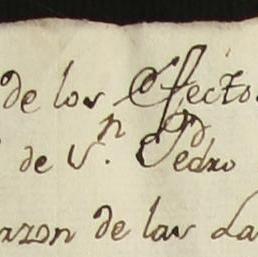 de los Efecto
de Sn. Pedro
razon de las La